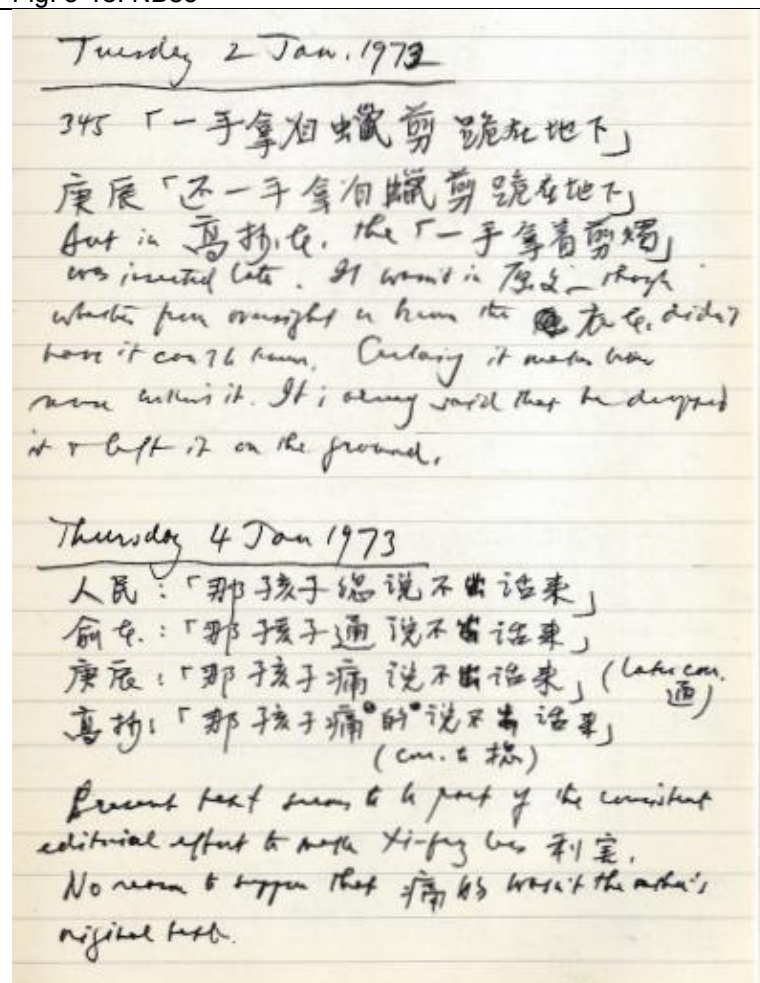 Tuesday 2 Jan. 1973
345 「一手拿着蠟剪跪在地下」
庚辰「还一手拿着蠟剪跪在地下」
But in 高抄本, the 「一手拿着剪燭」
was inserted later. It wasn't in 原文 though
whether from oversight or because the 底本 didn't
have it can't be known. Certainly it makes
more without it. It is already said that he dropped
it & left it on the ground.
Thursday 4 Jan 1973
人民:「那孩子總说不出话来」
俞本:「那孩子通说不出话来」
庚辰:「那孩子痛说不出话来」(later corr.
通)
高抄:「那孩子痛的说不出话来」
(corr. to 揔)
Present text seems to be part of the consistent
editorial effort to make Xi-feng less 利害.
No reason to suppose that 痛的 wasn't the author's
original text.